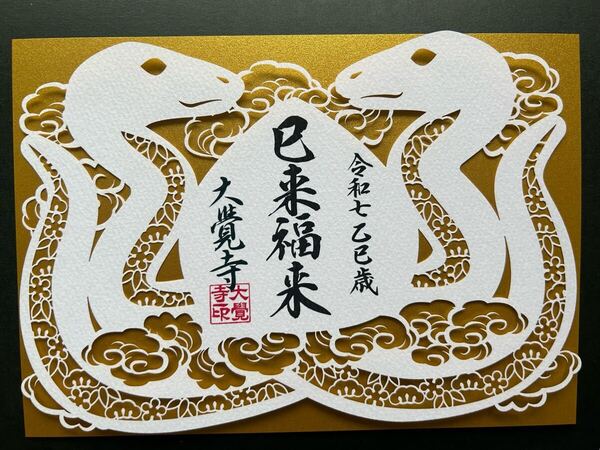 令和七乙巳歳
巳来福来
大覺寺
大覺
寺印